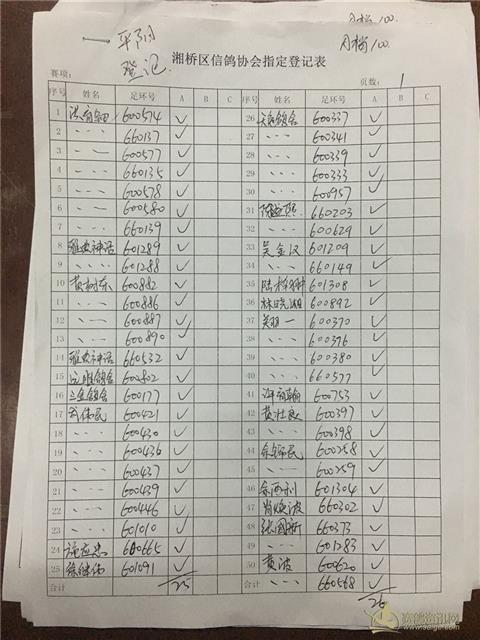 一 平阴
登记
月榜 100.
月榜 100.
湘桥区信鸽协会指定登记表
赛项: 页数: 1
序号 姓名 足环号 A B C 序号 姓名 足环号 A B C
1 600574 ✓ 26 600337 ✓
2 、、、 660137 ✓ 27 、、、 600341 ✓
3 、、 600577 ✓ 28 、、、 600339 ✓
4 、、、 660135 ✓ 29 、、、 600333 ✓
5 、、、 600578 ✓ 30 、、、 600957 ✓
6 、、 600580 ✓ 31 660203 ✓
7 、、、 660139 ✓ 32 、、、 600629 ✓
8 雅安神话 601289 ✓ 33 吴金汉 601209 ✓
9 、、、 601288 ✓ 34 、、、 660149 ✓
10 黄树东 600882 ✓ 35 601308 ✓
11 、、、 600886 ✓ 36 林晓湘 600892 ✓
12 、、、 600887 ✓ 37 吴丽一 600370 ✓
13 、、、 600890 ✓ 38 、、、 600376 ✓
14 雅安神话 660532 ✓ 39 、、、 600380 ✓
15 600802 ✓ 40 、、、 660577 ✓
16 三金鸽舍 600177 ✓ 41 600753 ✓
17 600421 ✓ 42 黄壮武 600397 ✓
18 、、、 600430 ✓ 43 、、、 600398 ✓
19 、、、 600436 ✓ 44 余锦民 600258 ✓
20 、、、 600437 ✓ 45 、、、 600259 ✓
21 、、、 600439 ✓ 46 余两利 601304 ✓
22 、、、 600446 ✓ 47 肖焕波 660302 ✓
23 、、、 601010 ✓ 48 张国新 660373 ✓
24 600665 ✓ 49 、、、 601283 ✓
25 徐继伟 601091 ✓ 50 黄波 600620 ✓
合计 25 合计 、、、 660568 ✓
26